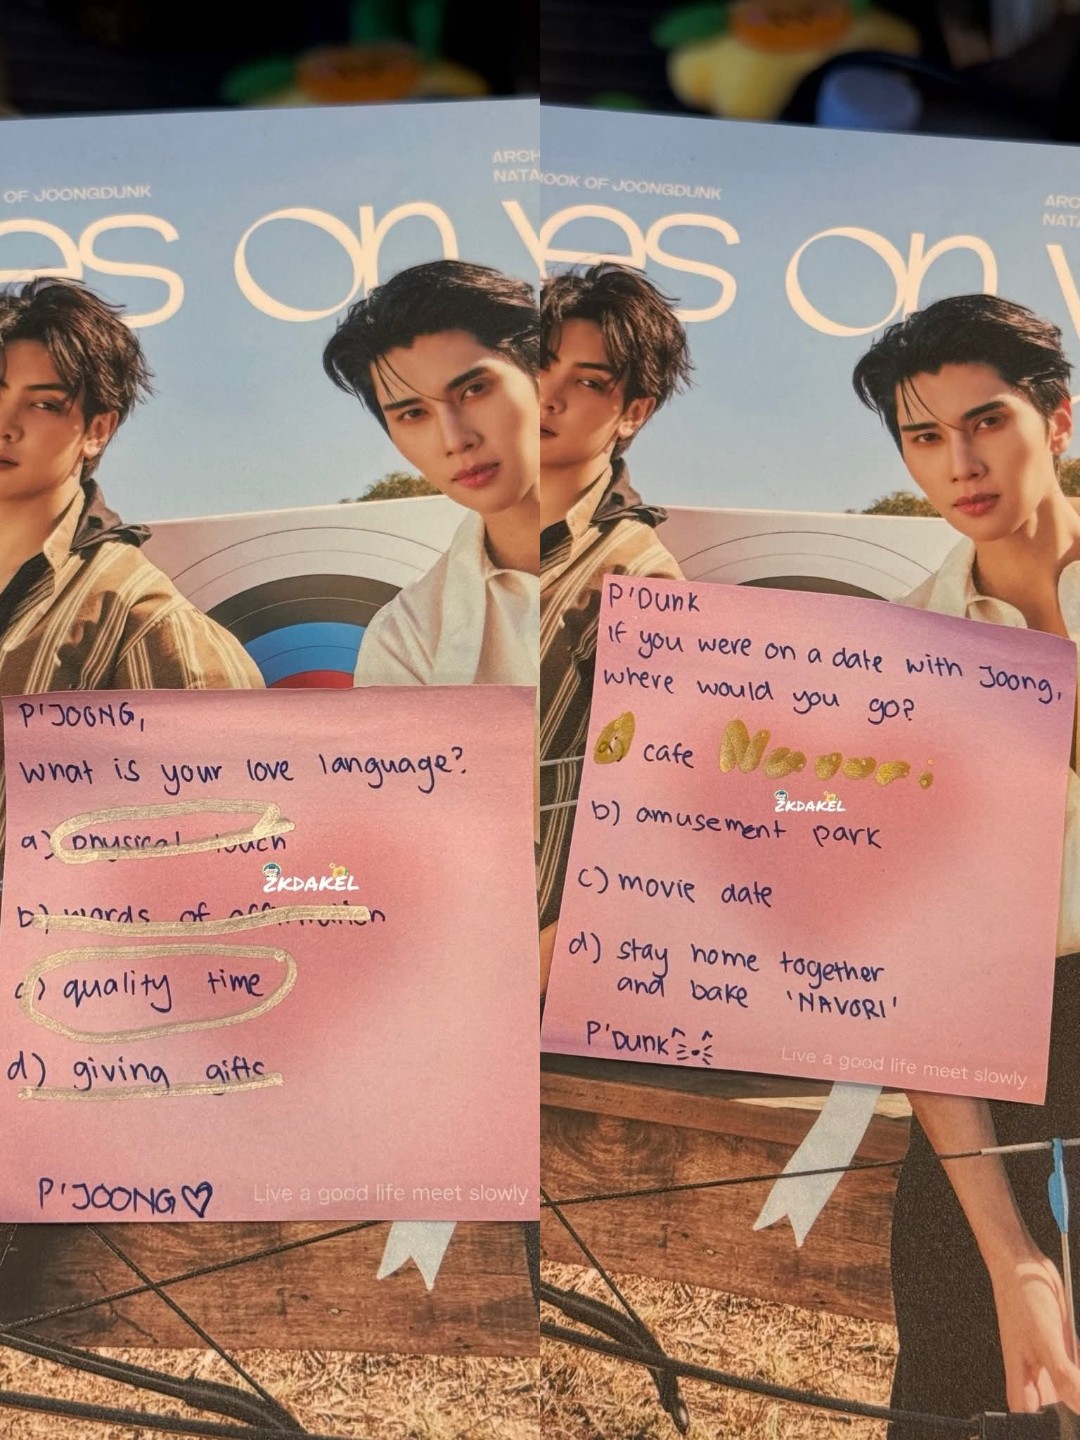 OF JOONGDUNK
ARCH
NATA
es on y
P'JOONG,
What is your love language?
a) physical touch
b) words of affirmation
c) quality time
d) giving gifts
P'JOONG♡
Live a good life meet slowly
ZKDAKEL
OOK OF JOONGDUNK
ARC
NATA
es on y
P'Dunk
If you were on a date with Joong,
where would you go?
a) cafe Navori
b) amusement park
c) movie date
d) stay home together
and bake 'NAVORI'
P'Dunk
Live a good life meet slowly
ZKDAKEL